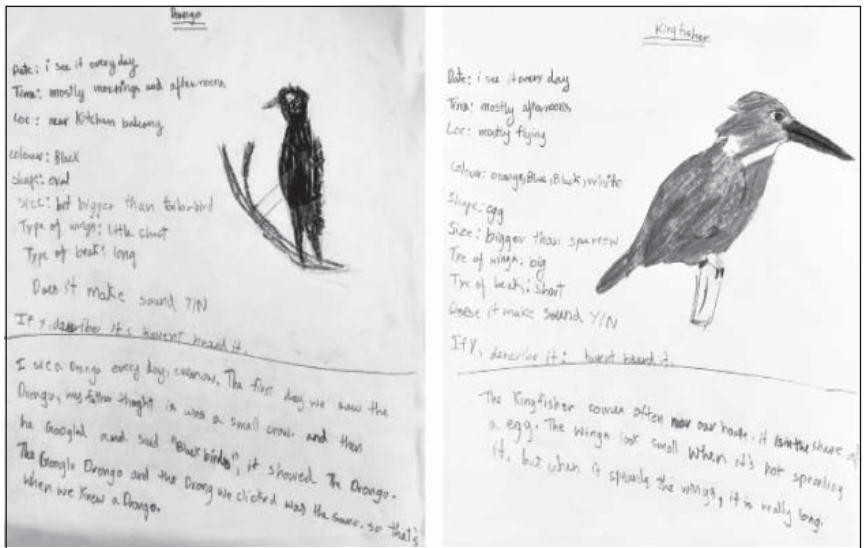 Drongo
Date: i see it every day
Time: mostly mornings and afternoons
Loc: near Kitchen balcony
colour: Black
shape: oval
size: bit bigger than tailor-bird
Type of wings: little short
Type of beak: long
Does it make sound Y/N
If Y, describe it: havent heard it.
I see a Drongo every day, The first day we saw the
Drongo, my father thought is was a small crow. and then
he Googled and said "Black birds", it showed The Drongo.
The Google Drongo and the Drong we clicked was the same. so that's
when we knew a Drongo.
Kingfisher
Date: i see it every day
Time: mostly afternoons
Loc: mostly flying
Colour: orange, Blue, Black, white
Shape: egg
Size: bigger than sparrow
Tye of wings: big
Tye of beak: short
Doese it make sound Y/N
If Y, describe it: havent heard it.
The Kingfisher comes often near our house. it is in the shape of
a egg. The wings look small when it's not spreading
it, but when it spreads the wings, it is really long.